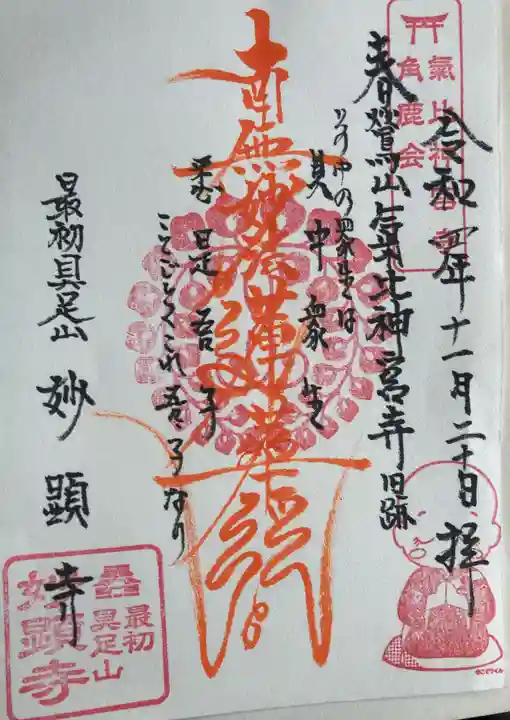 令和四年十一月二十日 拝
春鶯山氣比神宮寺旧跡
氣比神宮寺
角鹿会
いの中の衆生は
其中衆生
南無妙法蓮華経
悉是吾子
ことごとくこれ吾が子なり
最初具足山 妙顯寺
最初
具足山
妙顕寺